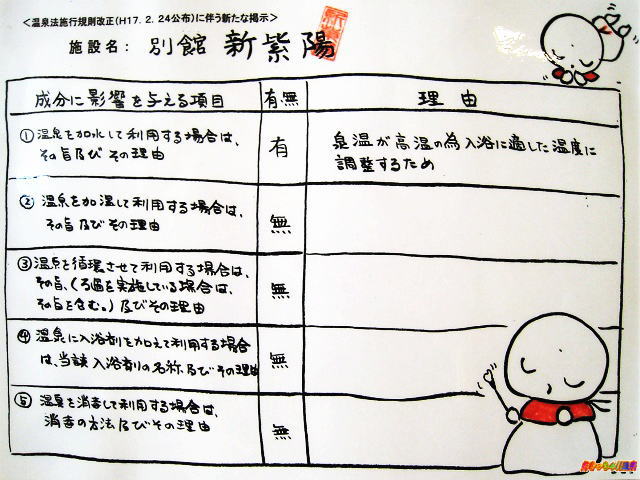 ＜温泉法施行規則改正(H17. 2. 24公布)に伴う新たな掲示＞
施設名: 別館 新紫陽
成分に影響を与える項目 有・無 理由
①温泉を加水して利用する場合は、
その旨及びその理由
有
泉温が高温の為入浴に適した温度に
調整するため
②温泉を加温して利用する場合は、
その旨及びその理由
無
③温泉を循環させて利用する場合は、
その旨、(ろ過を実施している場合は、
その旨を含む。)及びその理由
無
④温泉に入浴剤を加えて利用する場合
は、当該入浴剤の名称及びその理由
無
⑤温泉を消毒して利用する場合は、
消毒の方法及びその理由
無